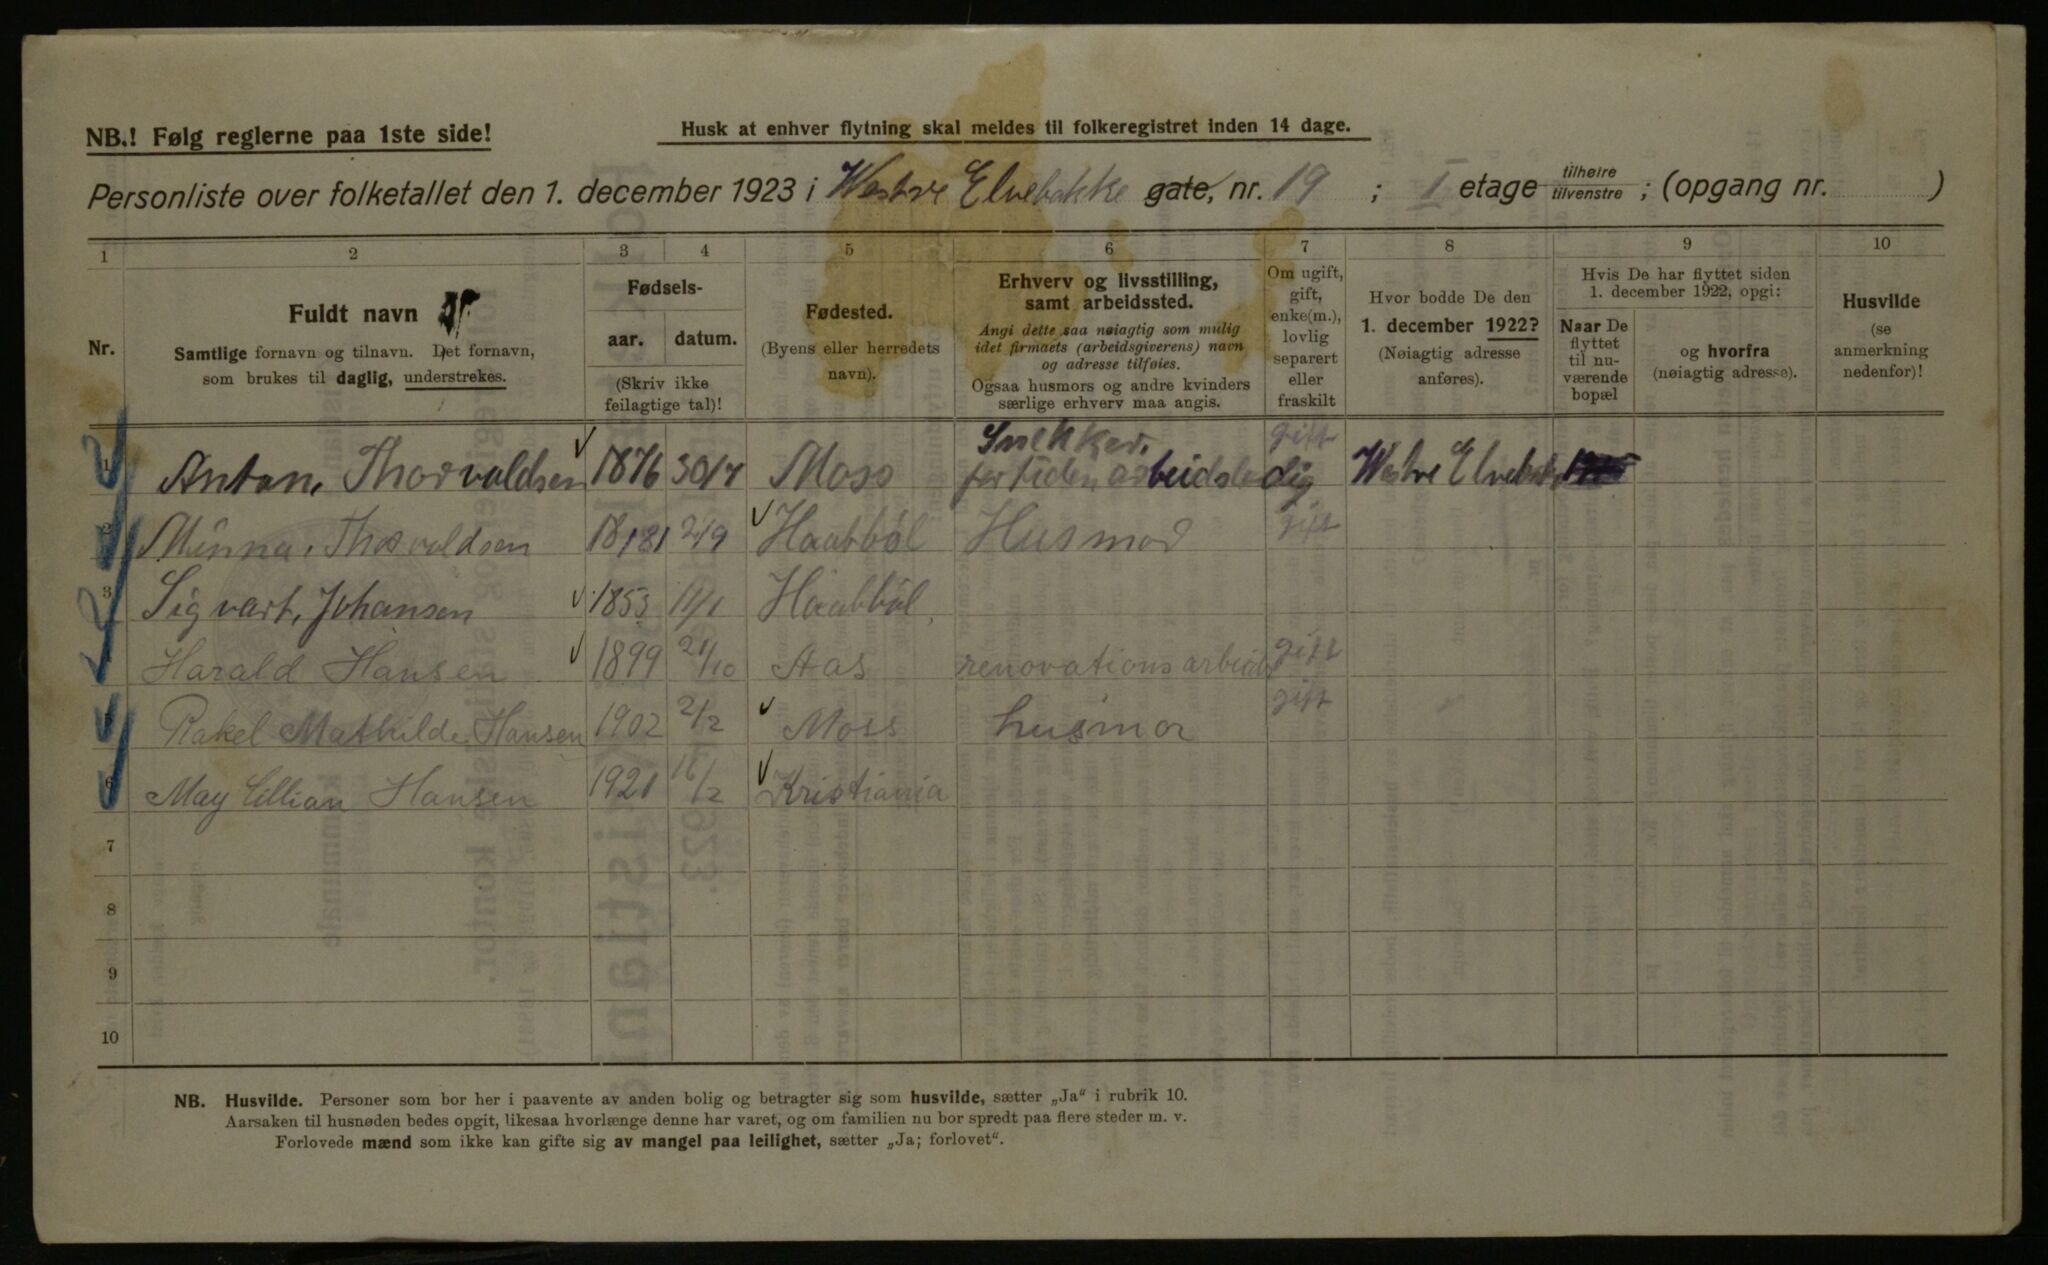 NB.! Følg reglerne paa 1ste side!
Husk at enhver flytning skal meldes til folkeregistret inden 14 dage.
Personliste over folketallet den 1. december 1923 i Westre Elvebakke gate, nr. 19 ; I etage tilhøire tilvenstre ; (opgang nr. )
1 2 3 4 5 6 7 8 9 10
Nr.
Fuldt navn
Samtlige fornavn og tilnavn. Det fornavn,
som brukes til daglig, understrekes.
Fødsels-
aar. datum.
(Skriv ikke
feilagtige tal)!
Fødested.
(Byens eller herredets
navn).
Erhverv og livsstilling,
samt arbeidssted.
Angi dette saa nøiagtig som mulig
idet firmaets (arbeidsgiverens) navn
og adresse tilføies.
Ogsaa husmors og andre kvinders
særlige erhverv maa angis.
Om ugift,
gift,
enke(m.),
lovlig
separert
eller
fraskilt
Hvor bodde De den
1. december 1922?
(Nøiagtig adresse
anføres).
Hvis De har flyttet siden
1. december 1922, opgi:
Naar De
flyttet
til nu-
værende
bopæl
og hvorfra
(nøiagtig adresse).
Husvilde
(se
anmerkning
nedenfor)!
Snekker. gift
1 Anton, Thorvaldsen 1876 30/7 Moss for tiden arbeidsledig Westre Elvebak
2 Minna, Thorvaldsen 1881 2/9 Haabbøl Husmod gift
3 Sigvart, Johansen 1853 11/1 Haabbøl
4 Harald Hansen 1899 21/10 Aas renovationsarbeid gift
5 Rakel Mathilde Hansen 1902 2/2 Moss husmor gift
6 May Lillian Hansen 1921 16/2 Kristiania
7
8
9
10
NB. Husvilde. Personer som bor her i paavente av anden bolig og betragter sig som husvilde, sætter „Ja“ i rubrik 10.
Aarsaken til husnøden bedes opgit, likesaa hvorlænge denne har varet, og om familien nu bor spredt paa flere steder m. v.
Forlovede mænd som ikke kan gifte sig av mangel paa leilighet, sætter „Ja; forlovet“.